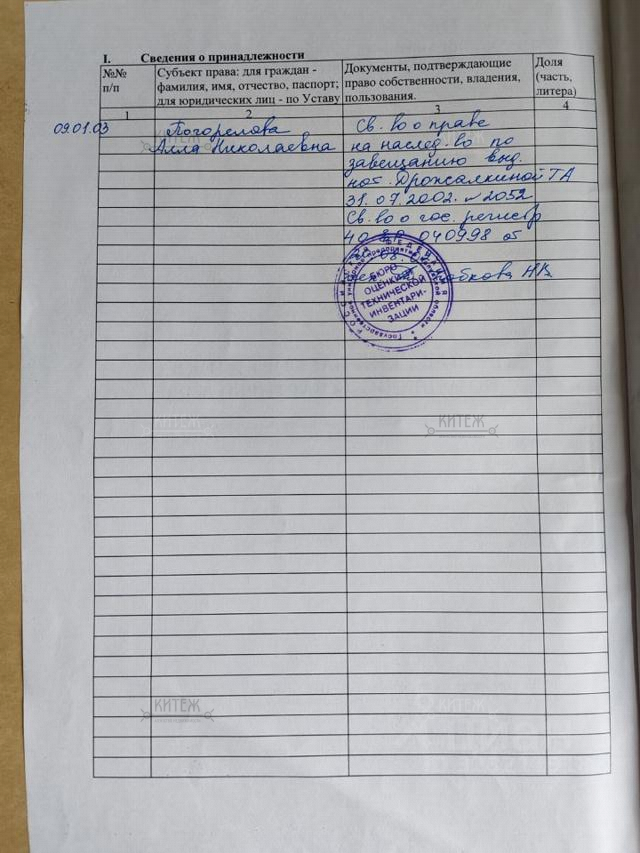 I. Сведения о принадлежности
№№
п/п
Субъект права: для граждан -
фамилия, имя, отчество, паспорт;
для юридических лиц - по Уставу
Документы, подтверждающие
право собственности, владения,
пользования.
Доля
(часть,
литера)
1 2 3 4
09.01.03
Погорелова
Алла Николаевна
Св. во о праве
на наслед. во по
завещанию выд.
нот. Дрожалкиной ТА
31.07.2002. № 2052
Св. во о гос. регистр
040998 от
БЮРО
ОЦЕНКИ И
ТЕХНИЧЕСКОЙ
ИНВЕНТАРИ-
ЗАЦИИ
КИТЕЖ
КИТЕЖ
КИТЕЖ
КИТЕЖ
КИТЕЖ
КИТЕЖ